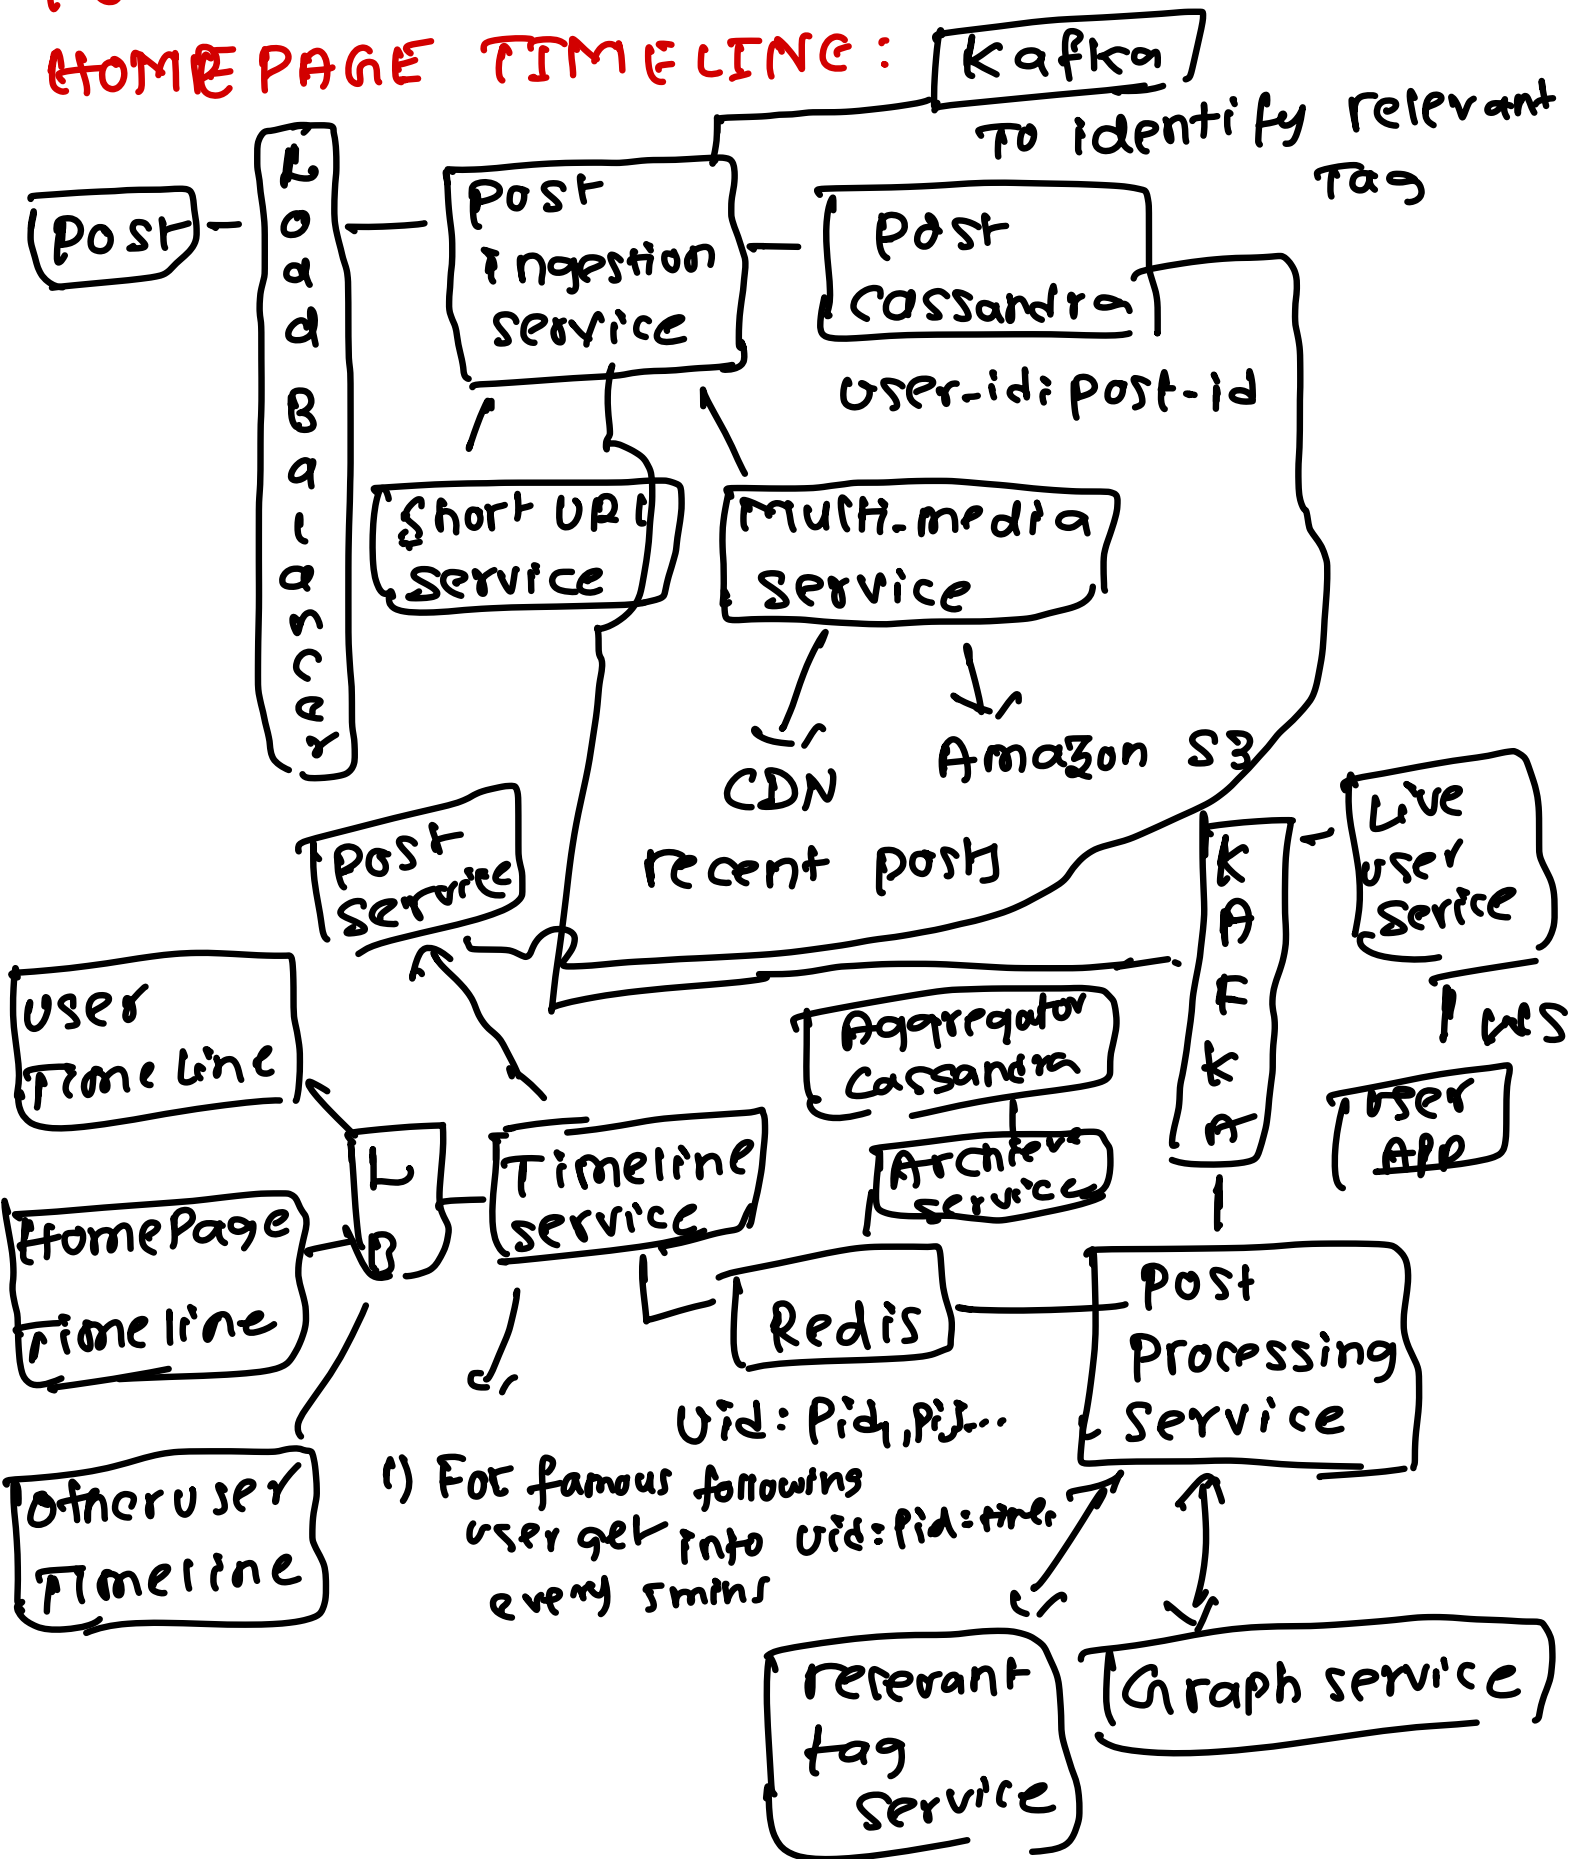 HOMEPAGE TIMELINE:
Kafka
To identify relevant
Tag
Post
Load Balancer
Post
Ingestion
service
Post
Cassandra
user-id: post-id
Short URL
service
Multi-media
service
CDN
Amazon S3
recent posts
Post
service
KAFKA
Live
user
Serice
WS
User
APP
User
Time Line
Aggregator
Cassandra
Archieve
service
LB
Timeline
service
HomePage
Timeline
Redis
Uid: Pid,
Post
Processing
Service
other user
Timeline
1) For famous following
user get into Uid:Pid:time
every 5mins
relevant
tag
service
Graph service